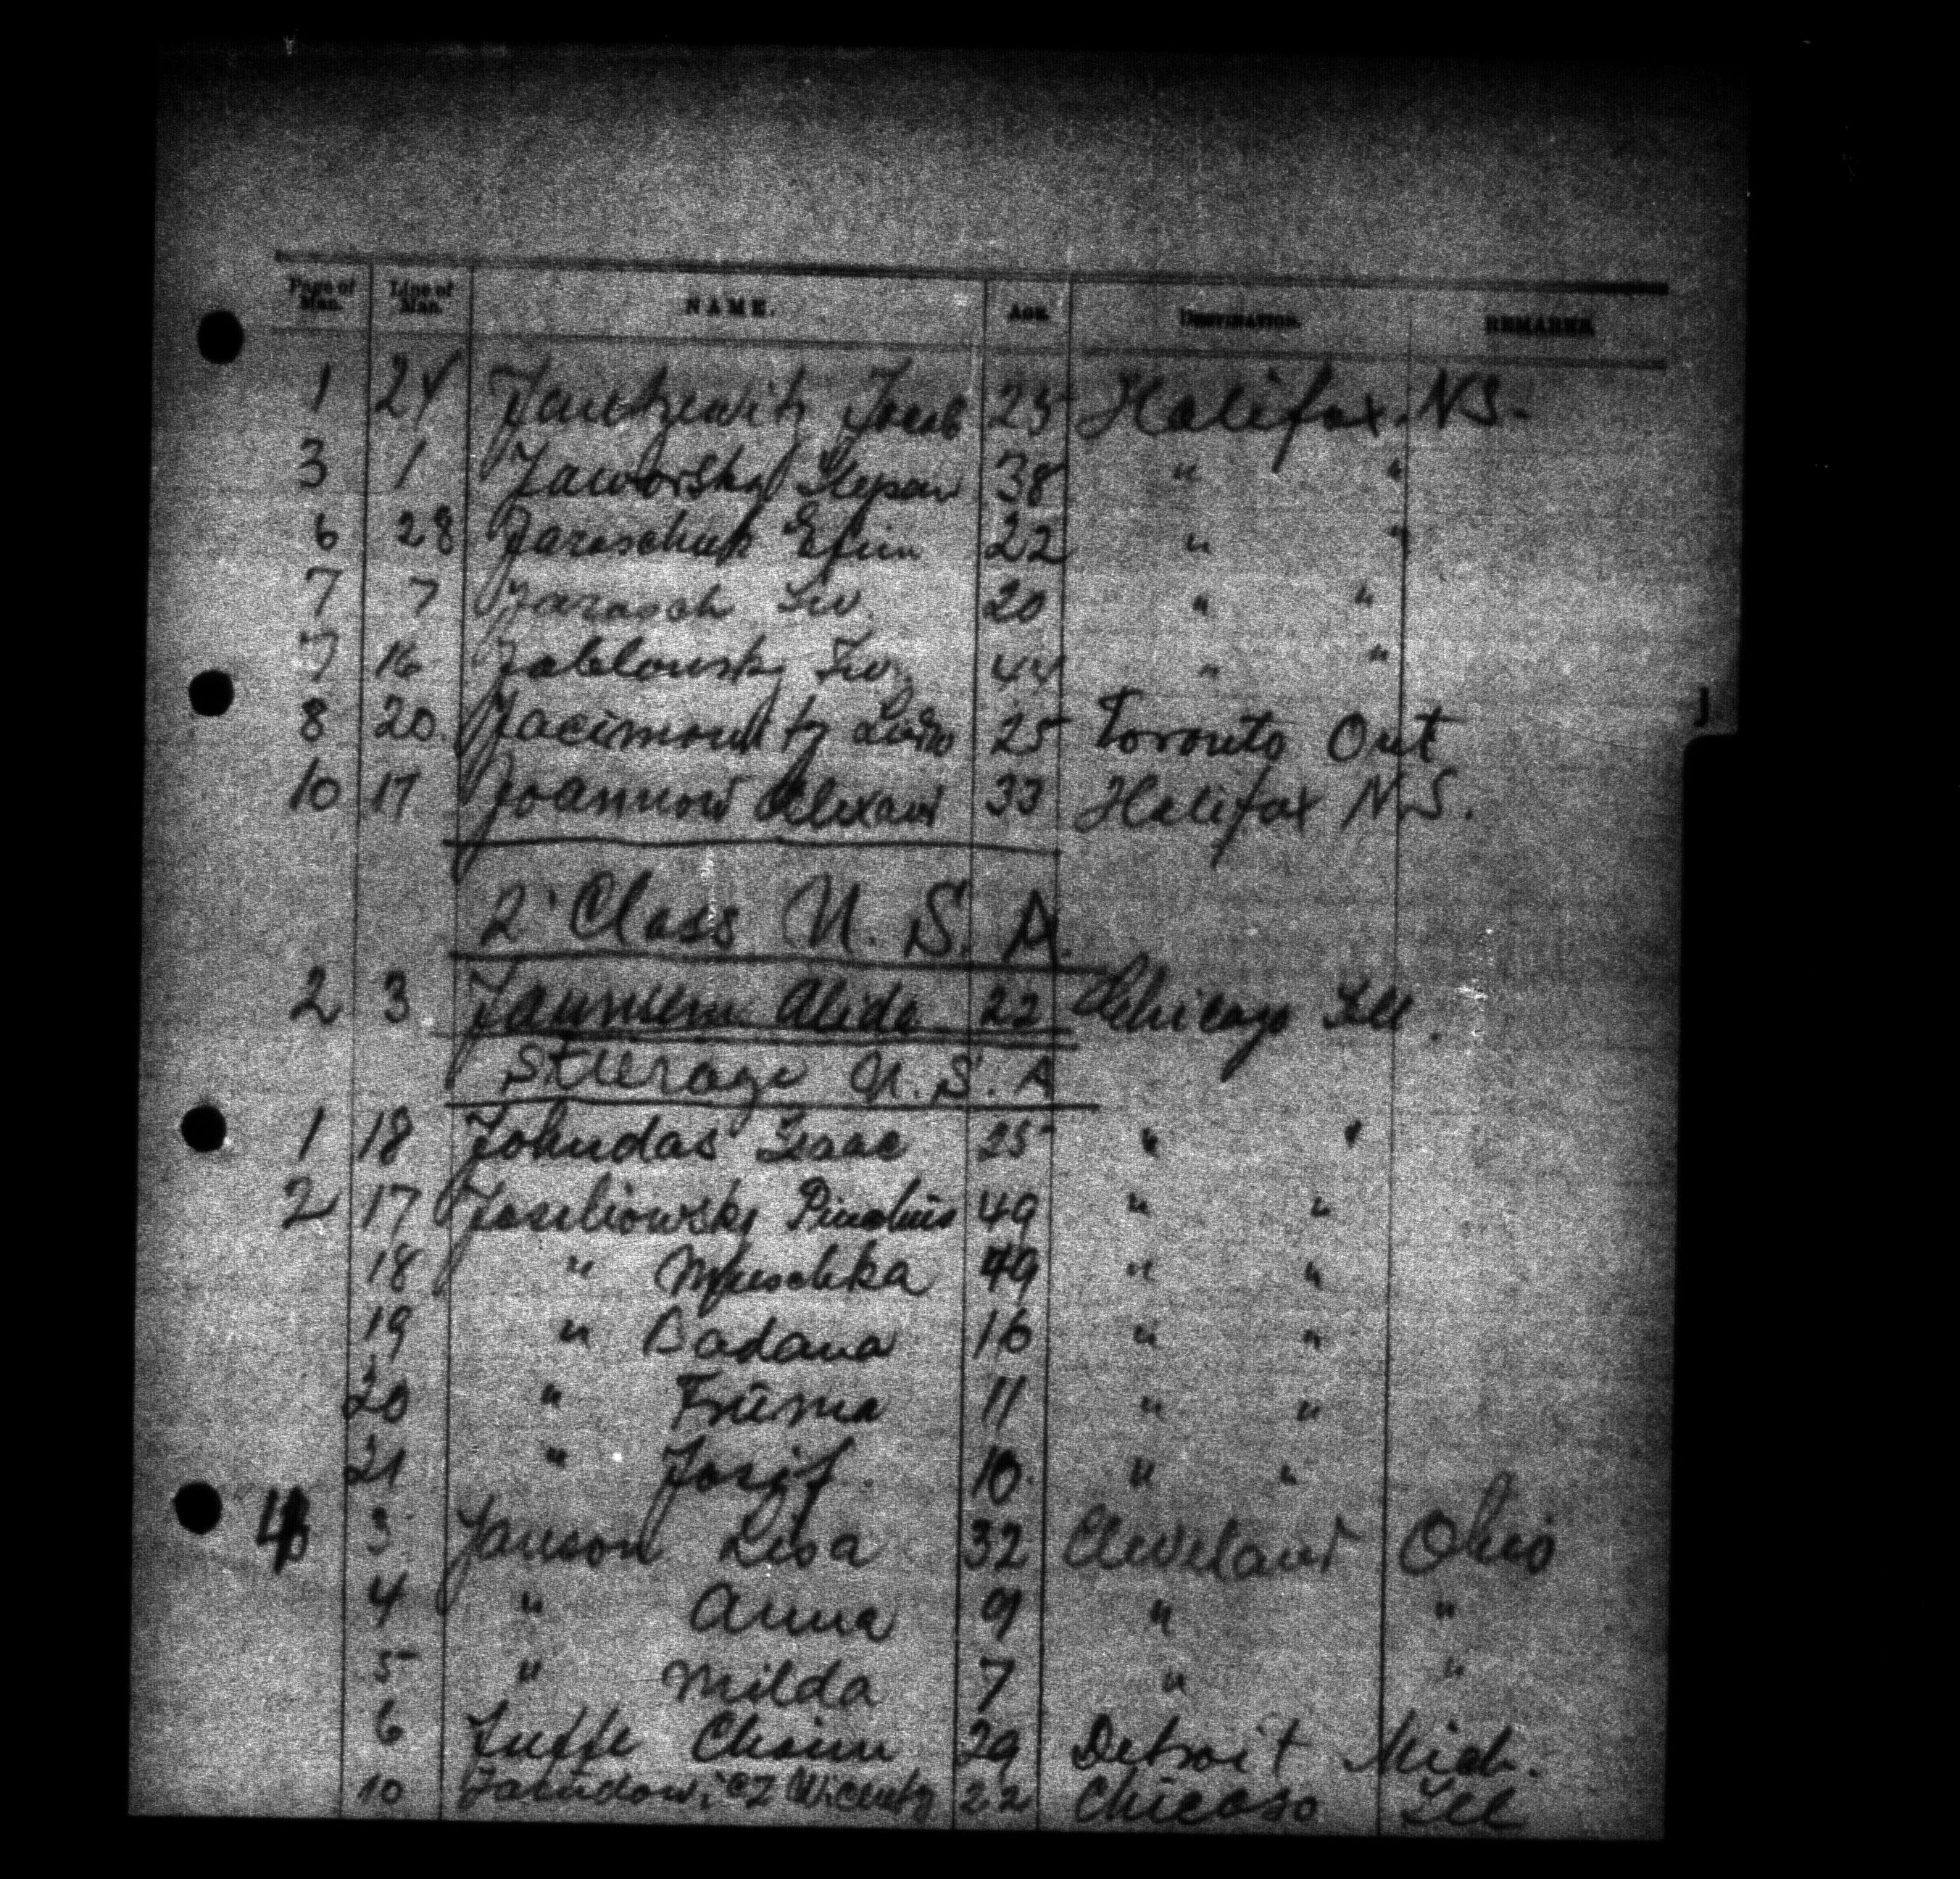 Page of Man. Line of Man. NAME. Age. Destination. REMARKS
1 24 25 Halifax. NS.
3 1 Jaworsky Stepan 38 " "
6 28 Jaroschuk Efim 22 " "
7 7 Jarosch 20 " "
7 16 Jablowsky 44 " "
8 20. 25 Toronto Ont
10 17 Joannow Alexan 33 Halifax N.S.
2 Class U. S. A.
2 3 Alida 22 Chicago Ill.
Steerage U. S. A
1 18 Johudas Isaac 25 " "
2 17 49 " "
18 " 49 " "
19 " Badana 16 " "
20 " Frūma 11 " "
21 " Josif. 10. " "
4 3 Janson Lisa 32 Cleveland Ohio
4 " Anna 9 " "
5 " Milda 7 " "
6 Juffe Chaim 29 Detroit Mich.
10 22 Chicago Ill
J